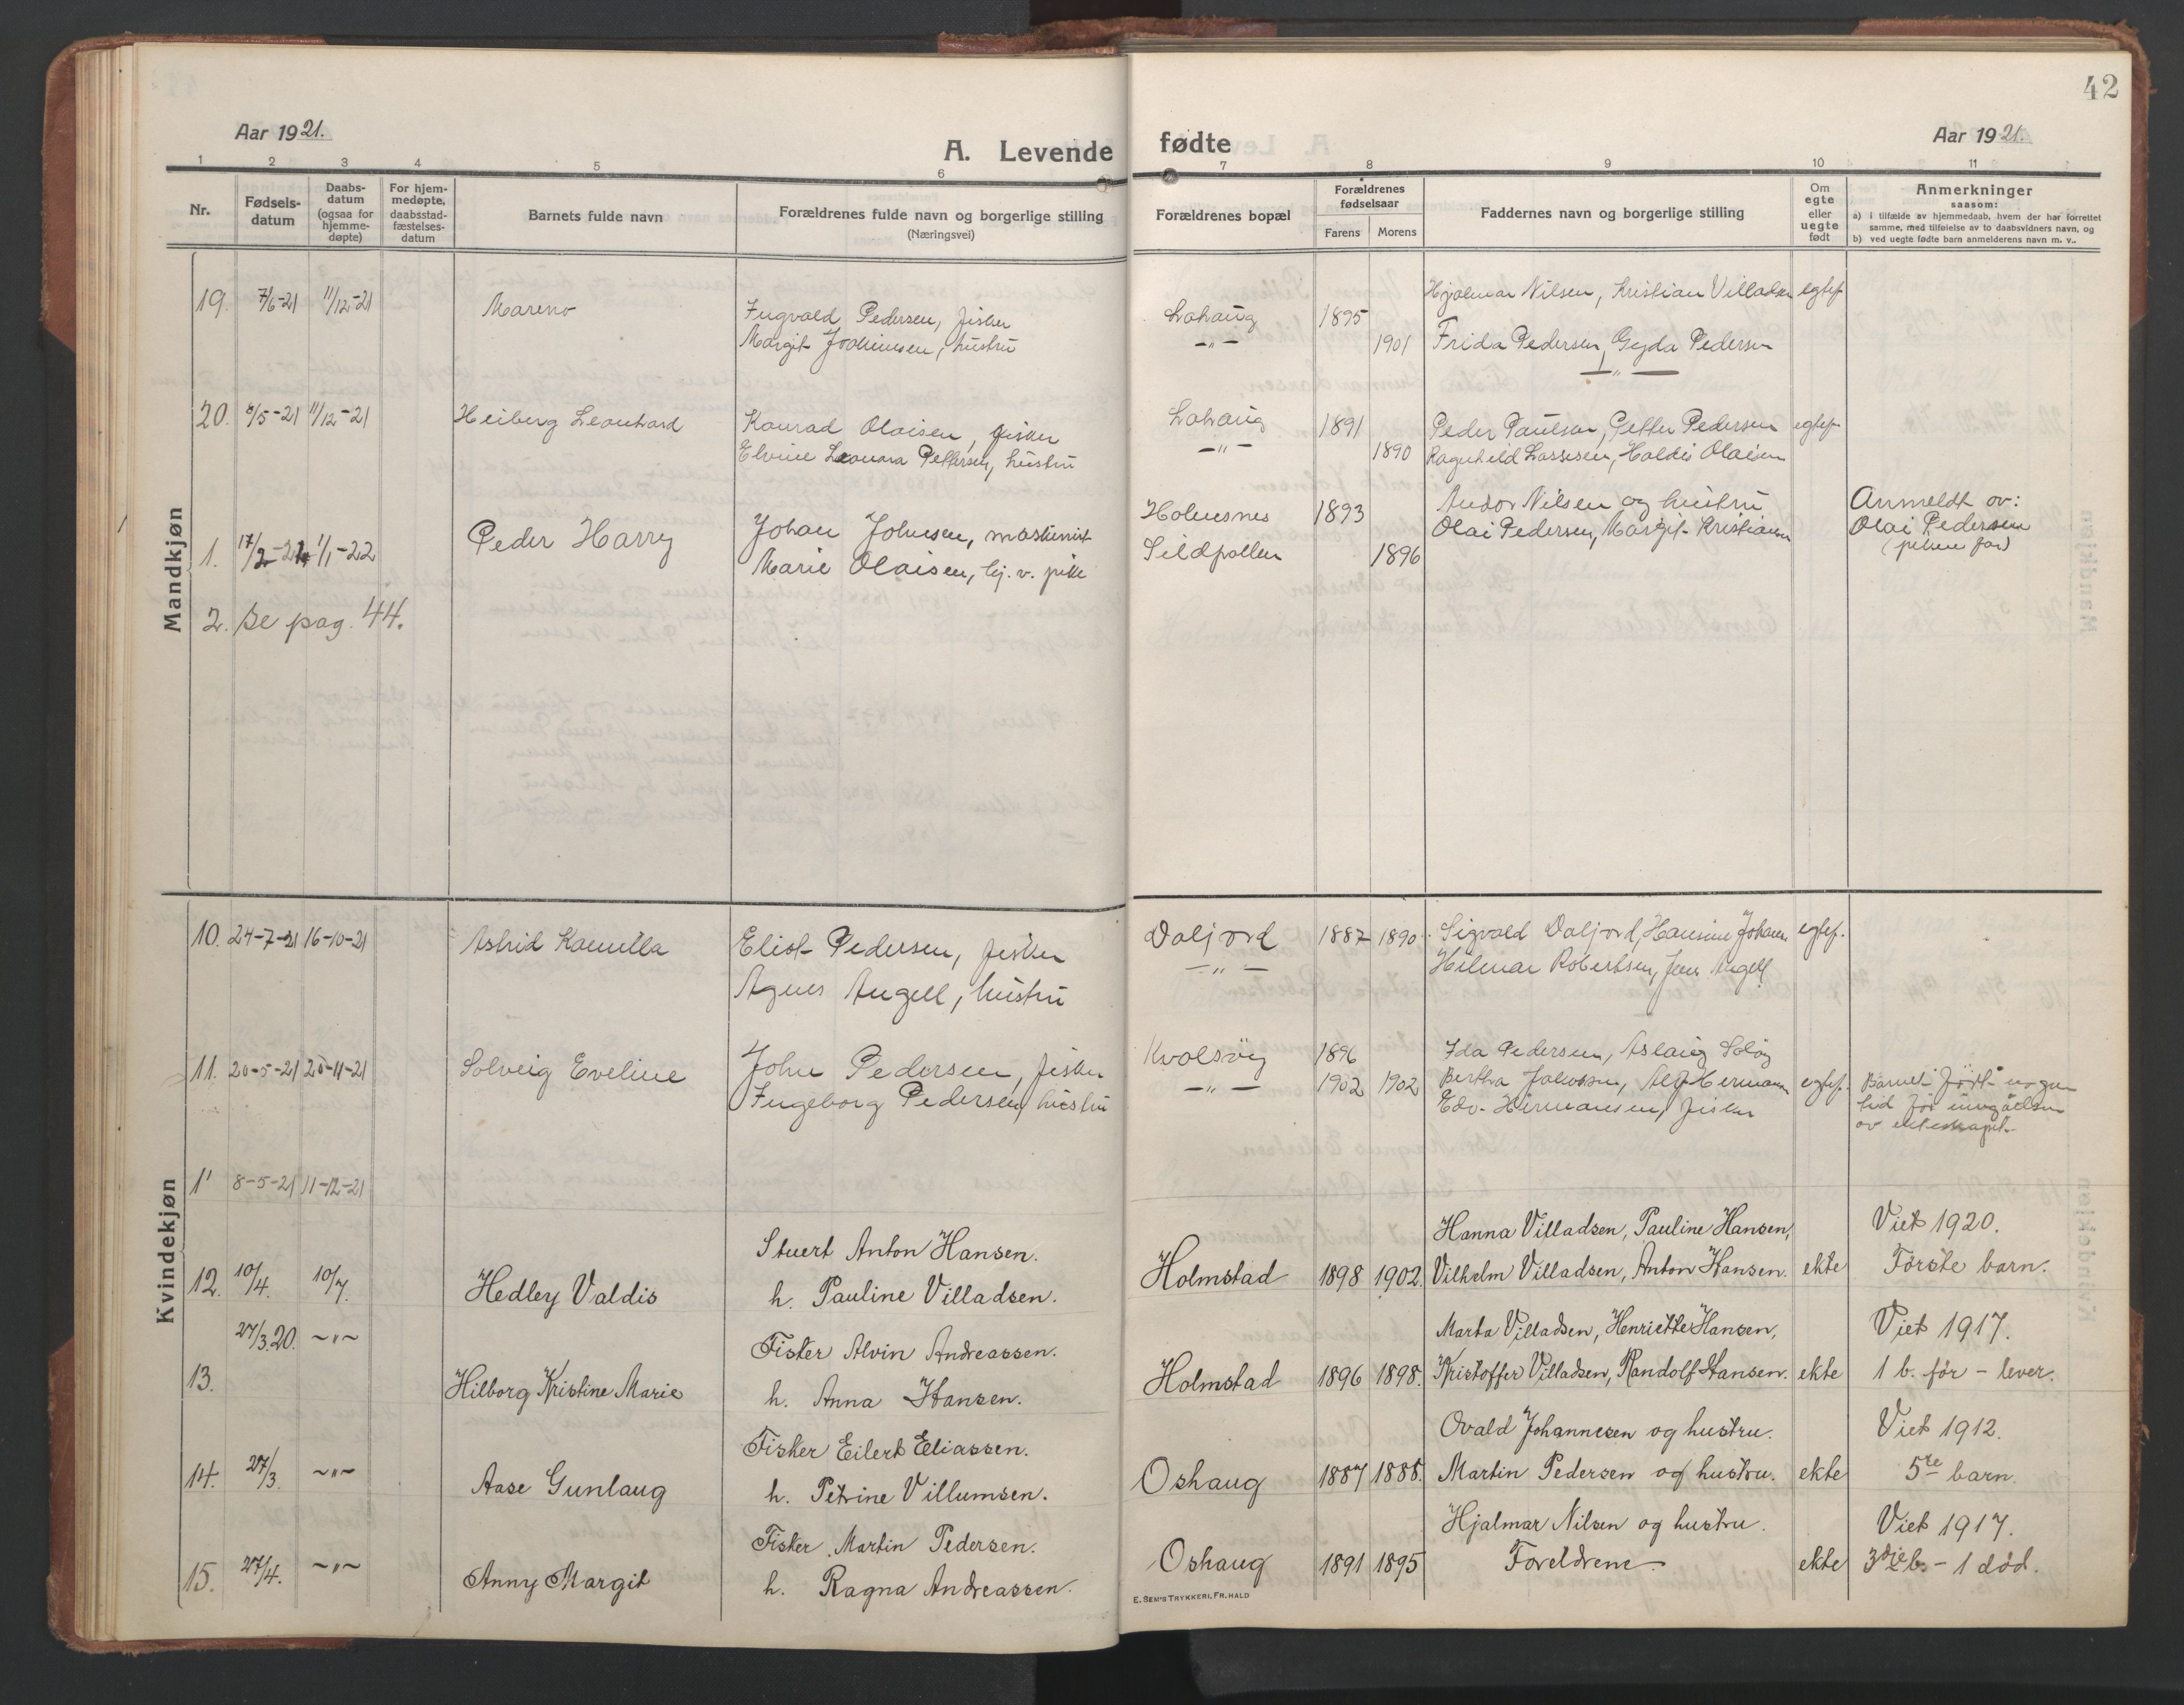 42
Aar 1921.
A. Levende fødte
Aar 1921.
1 2 3 4 5 6 7 8 9 10 11
Nr.
Fødsels-
datum
Daabs-
datum
(ogsaa for
hjemme-
døpte)
For hjem-
medøpte,
daabsstad-
fæstelses-
datum
Barnets fulde navn
Forældrenes fulde navn og borgerlige stilling
(Næringsvei)
Forældrenes bopæl
Forældrenes
fødselsaar
Farens Morens
Faddernes navn og borgerlige stilling
Om
egte
eller
uegte
født
Anmerkninger
saasom:
a) i tilfælde av hjemmedaab, hvem der har forrettet
samme, med tilføielse av to daabsvidners navn, og
b) ved uegte fødte barn anmelderens navn m. v..
Mandkjøn
19. 7/6-21 11/12-21 Mareno
Ingvald Pedersen, fisker
Margit Joakimsen, hustru
Lahaug 1895
-"- 1901
Hjalmar Nilsen, Kristian Villadsen egtef.
Frida Pedersen, Gyda Pedersen
-"-
20. 8/5-21 11/12-21 Heiberg Leonhard
Konrad Olaisen, fisker
Elvine Leonara Pettersen, hustru
Lahaug 1891
-"- 1890
Peder Paulsen, Petter Pedersen egtef
Ragnhild Lassesen, Haldis Olaisen
1. 17/2-21 1/1-22 Peder Harry
Johan Johnsen, maskinist
Marie Olaisen, hj. v. pike
Holmesnes 1893
Sildpollen 1896
Andor Nilsen og hustru
Olai Pedersen, Margit Kristiansen
Anmeldt av:
Olai Pedersen
(pikens far)
2. Se pag. 44.
Kvindekjøn
10. 24-7-21 16-10-21 Astrid Kamilla
Elist Pedersen, fisker
Agnes Angell, hustru
Daljord 1887 1890
-"-
Sigvald Daljord, Hansine Johans. egtef.
Hilmar Robertsen, Jens Angell
11. 20-5-21 20-11-21 Solveig Eveline
John Pedersen, fisker
Ingeborg Pedersen, hustru
Kvalsöy 1896
-"- 1902 1902
Ida Pedersen, Aslaug Solög
Bertha Jakobsen, Alf Hermans. egtef.
Edv. Hermansen, fisker
Barnet født nogen
tid før inngåelsen
av ekteskapet.
1' 8-5-21 11-12-21
12. 10/4. 10/7. Hedley Valdis
Stuert Anton Hansen.
h. Pauline Villadsen.
Holmstad 1898 1902.
Hanna Villadsen, Pauline Hansen,
Vilhelm Villadsen, Anton Hansen. ekte
Viet 1920.
Förste barn.
13. 27/3.20. ~"~ Hilborg Kristine Marie
Fisker Alvin Andreassen.
h. Anna Hansen.
Holmstad 1896 1898.
Marta Villadsen, Henriette Hansen,
Kristoffer Villadsen, Randolf Hansen. ekte
Viet 1917.
1 b. för - lever.
14. 27/3. ~"~ Aase Gunlaug
Fisker Eilert Eliassen.
h. Petrine Villumsen.
Oshaug 1887 1888.
Ovald Johannesen og hustru.
Martin Pedersen og hustru. ekte
Viet 1912.
5te barn.
15. 27/4. ~"~ Anny Margit
Fisker Martin Pedersen.
h. Ragna Andreassen.
Oshaug 1891 1895
Hjalmar Nilsen og hustru.
Foreldrene. ekte
Viet 1917.
3dje b. - 1 död.
E. SEM'S TRYKKERI, FR.HALD